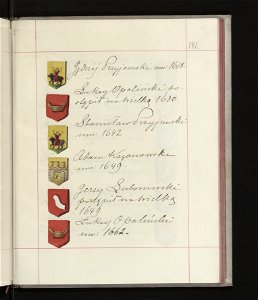 182
Jędrzej Przyjemski um. 1618.
Łukasz Opaliński po-
stąpił na wielką 1630.
Stanisław Przyjemski
um: 1642
Adam Kazanowski
um: 1649
Jerzy Lubomirski
postąpił na wielką
1649
Łukasz Opaliński
um: 1662.